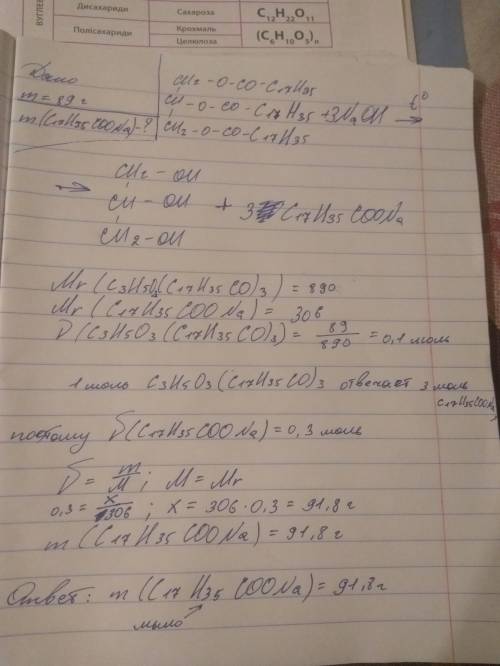 ВУГЛЕВ
Дисахариди Сахароза C12H22O11
Полісахариди Крохмаль (C6H10O5)n
Целюлоза
Дано
m = 89 г
m(C17H35COONa)-?
CH2-O-CO-C17H35
CH-O-CO-C17H35+3NaOH t° →
CH2-O-CO-C17H35
→ CH2-OH
CH-OH + 3 C17H35COONa
CH2-OH
Mr(C3H5O3(C17H35CO)3) = 890
Mr(C17H35COONa) = 306
ν(C3H5O3(C17H35CO)3) = 89/890 = 0,1 моль
1 моль C3H5O3(C17H35CO)3 отвечает 3 моль
C17H35COONa,
поэтому ν(C17H35COONa) = 0,3 моль
ν = m/M ; M = Mr
0,3 = x/306 ; x = 306·0,3 = 91,8 г
m(C17H35COONa) = 91,8 г
Ответ: m(C17H35COONa) = 91,8 г
мыло